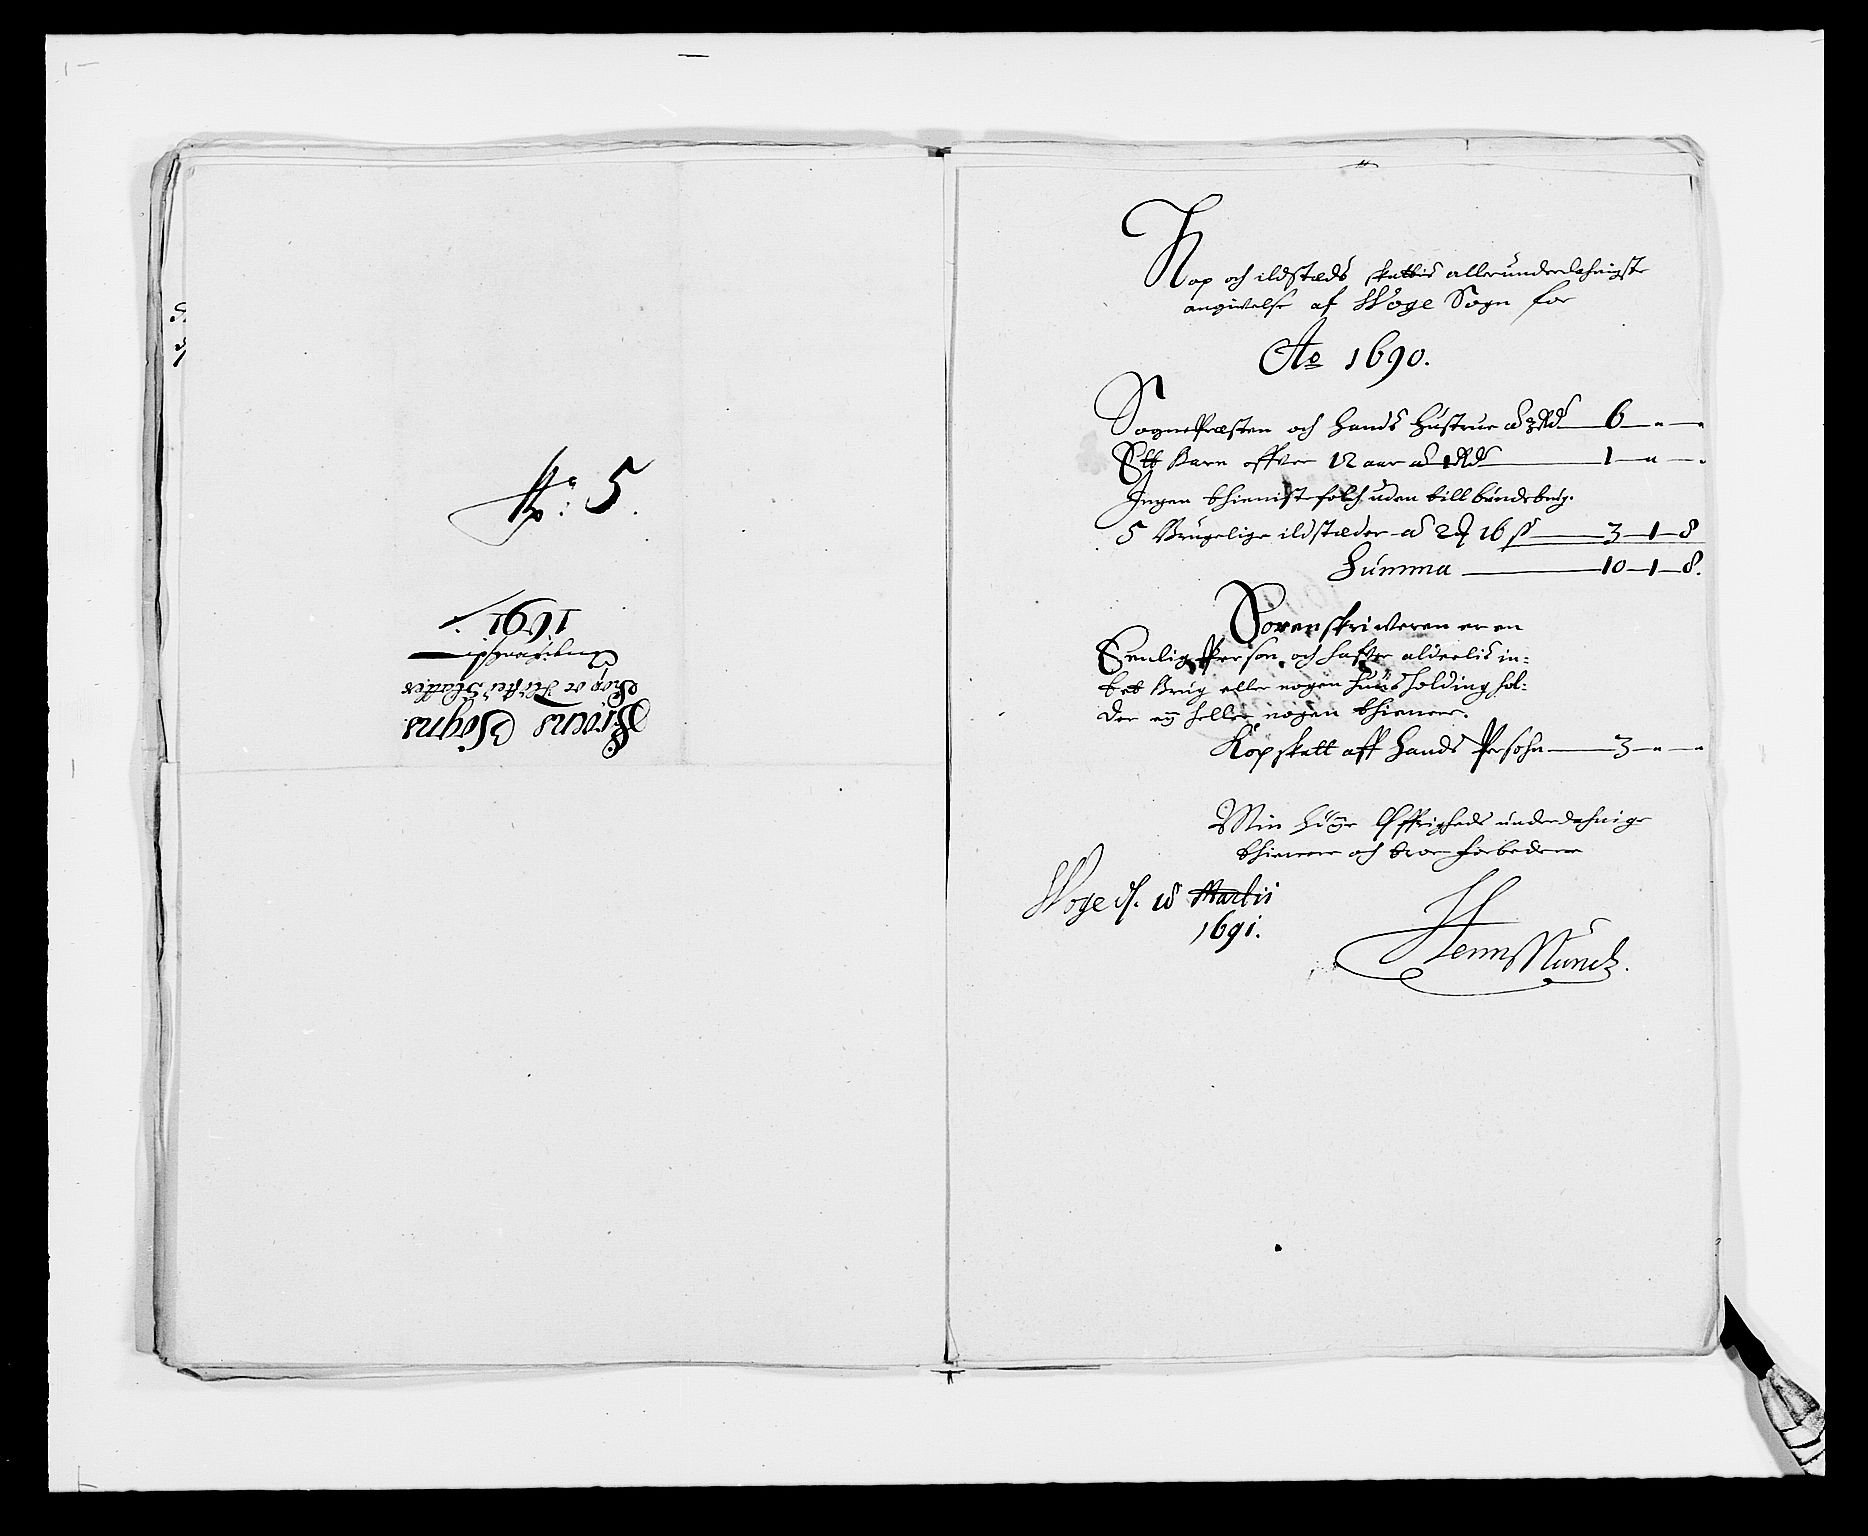 No: 5.
Froens Sogns
Kop oc Ildsteds Skatters
Angifvendis
1691
Kop och ildstæds skattis allerunderdahnigste
angivelse af Woge Sogn for
Ao 1690.
SognePræsten och hands hustrue a 3 Rdr 6 - " - "
Ett Barn offver 12 aar a 1 Rdr 1 - " - "
Ingen thieniste folch uden till bondebrug.
5 Brugelige ildstæder a 2 16 s 3 - 1 - 8
Summa 10 - 1 - 8.
Sorenskriweren er en
Eenlig Person, och hafver alderlis in-
tet Brug eller nogen huus holding hol-
der ey heller nogen thiener.
Kopskatt aff hands Persohn 3 - " - "
Min höge Øffrigheds underdahnige
thienere och troe forbedere
Woge d. 18 Martii
1691.
Henn Munck.